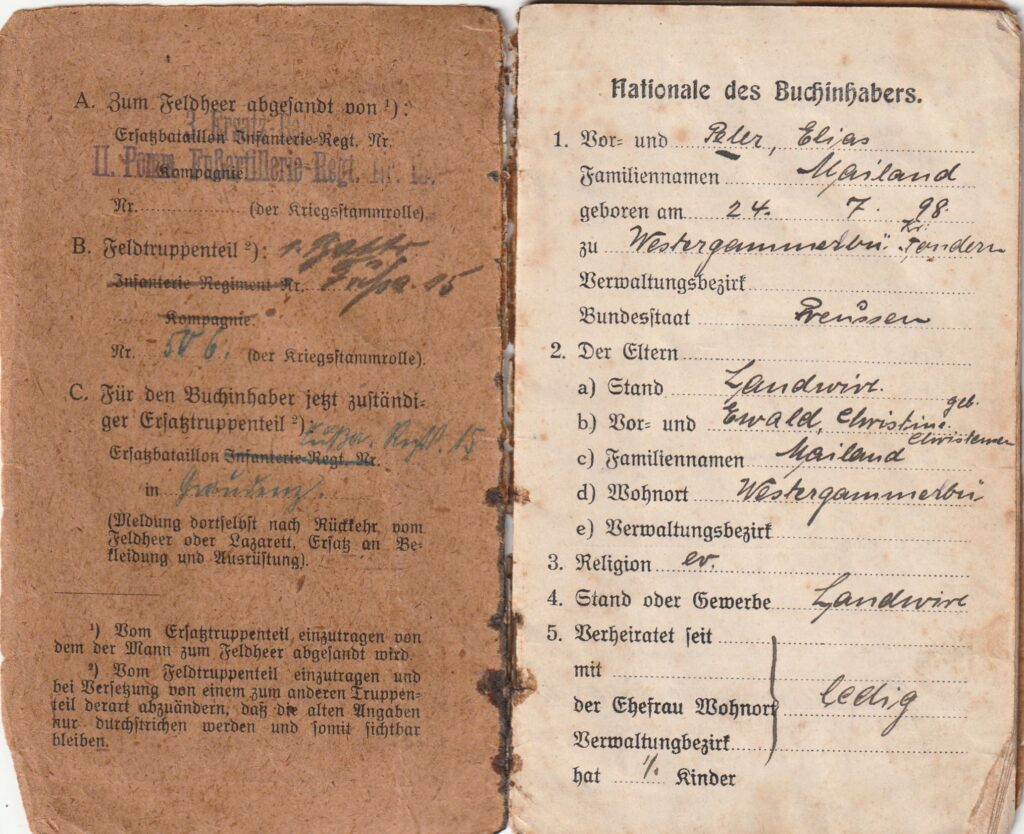 A. Zum Feldheer abgesandt von ¹):
Ersatzbataillon Infanterie-Regt. Nr.
II. Pomm. Fußartillerie-Regt. Nr. 15.
Kompagnie
Nr. (der Kriegsstammrolle).
B. Feldtruppenteil ²): 1. Battr
Infanterie Regiment Nr. Fußa. 15
Kompagnie.
Nr. 506. (der Kriegsstammrolle).
C. Für den Buchinhaber jetzt zuständi-
ger Ersatztruppenteil ²)
Fußa. Regt. 15
Ersatzbataillon Infanterie-Regt. Nr.
in Graudenz.
(Meldung dortselbst nach Rückkehr, vom
Feldheer oder Lazarett, Ersatz an Be-
kleidung und Ausrüstung).
¹) Vom Ersatztruppenteil einzutragen von
dem der Mann zum Feldheer abgesandt wird.
²) Vom Feldtruppenteil einzutragen und
bei Versetzung von einem zum anderen Truppen-
teil derart abzuändern, daß die alten Angaben
nur durchstrichen werden und somit sichtbar
bleiben.
Nationale des Buchinhabers.
1. Vor- und Peter, Elias
Familiennamen Mailand
geboren am 24. 7. 98.
zu Westergammerbü Kr. Tondern
Verwaltungsbezirk
Bundesstaat Preussen
2. Der Eltern
a) Stand Landwirt.
b) Vor- und Ewald, Christine geb.
Christensen
c) Familiennamen Mailand
d) Wohnort Westergammerbü
e) Verwaltungsbezirk
3. Religion ev.
4. Stand oder Gewerbe Landwirt
5. Verheiratet seit
mit
der Ehefrau Wohnort ledig
Verwaltungbezirk
hat ./. Kinder